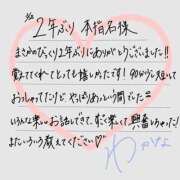 2年ぶり 本指名様
まさかのびっくり2年ぶりにありがとうございました!!
覚えててくれてとっても嬉しかったです! 90分ワン短って
おっしゃってたけど、やっぱりあっという間でした
いろんな楽しいお話しできて、すごく楽しくて興奮しちゃった!
またいろいろ教えてください♡